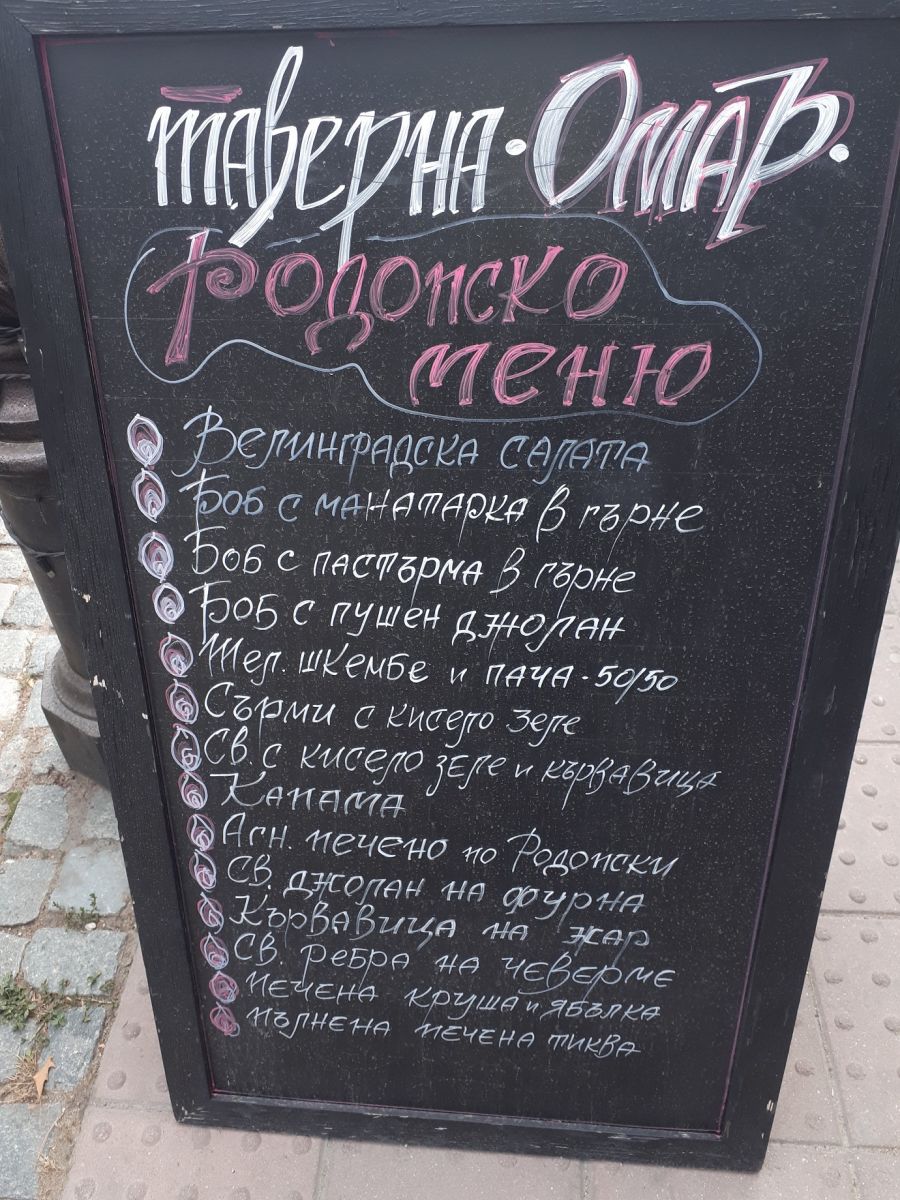 таверна · Омар ·
Родопско
меню
Велинградска салата
Боб с манатарка в гърне
Боб с пастърма в гърне
Боб с пушен джолан
Тел. шкембе и пача - 50/50
Сърми с кисело зеле
Св. с кисело зеле и кървавица
Капама
Агн. печено по Родопски
Св. джолан на фурна
Кървавица на жар
Св. ребра на чеверме
печена круша и ябълка
пълнена печена тиква